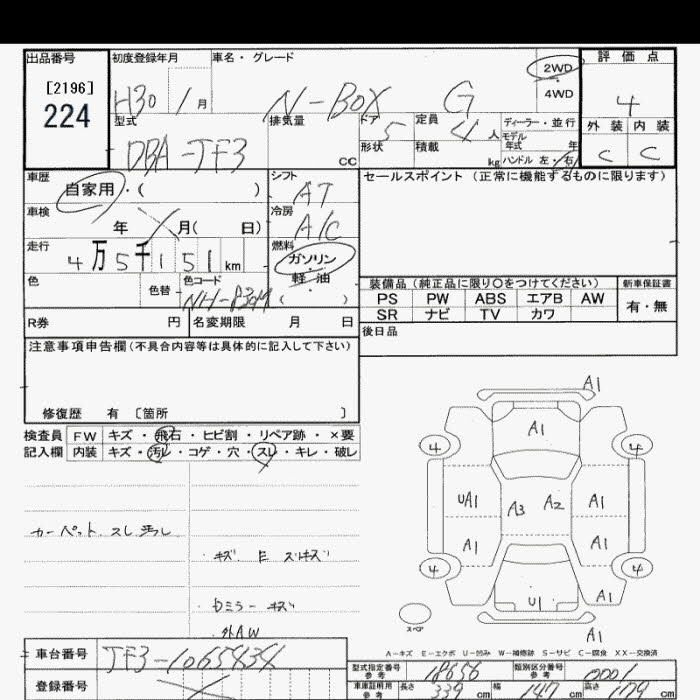 出品番号
[2196]
224
初度登録年月
H30 1 月
車名・グレード
N-BOX G
2WD
4WD
評価点
4
外装 内装
C C
型式
DBA-JF3
排気量
CC
ドア
5
定員
4 人
形状
積載
kg
ディーラー・並行
モデル
年式 年
ハンドル 左・右
車歴
自家用・( )
シフト
AT
車検
年 月( 日)
冷房
A/C
走行
4万5千151km
燃料
ガソリン
軽・油
( )
色
色替
色コード
NH-830M
R券 円
名変期限 月 日
セールスポイント(正常に機能するものに限ります)
装備品(純正品に限り〇をつけてください)
新車保証書
PS PW ABS エアB AW
SR ナビ TV カワ
有・無
後日品
注意事項申告欄(不具合内容等は具体的に記入して下さい)
修復歴 有 〔箇所 〕
検査員 FW キズ・飛石・ヒビ割・リペア跡・×要
記入欄 内装 キズ・汚レ・コゲ・穴・スレ・キレ・破レ
カーペット スレ汚レ
キズ E スリキズ
Dミラーキズ
外AW
A1
A1
4 4
UA1 A3 A2 A1
A1 A1
4 4
U1
A1
A1
スペア
A-キズ E-エクボ U-凹み W-補修跡 S-サビ C-腐食 XX-交換済
車台番号 JF3-1065434
登録番号
型式指定番号
参考
18656
類別区分番号
参考
0001
車庫証明用
参考
長さ 339 cm 幅 147 cm 高さ 179 cm